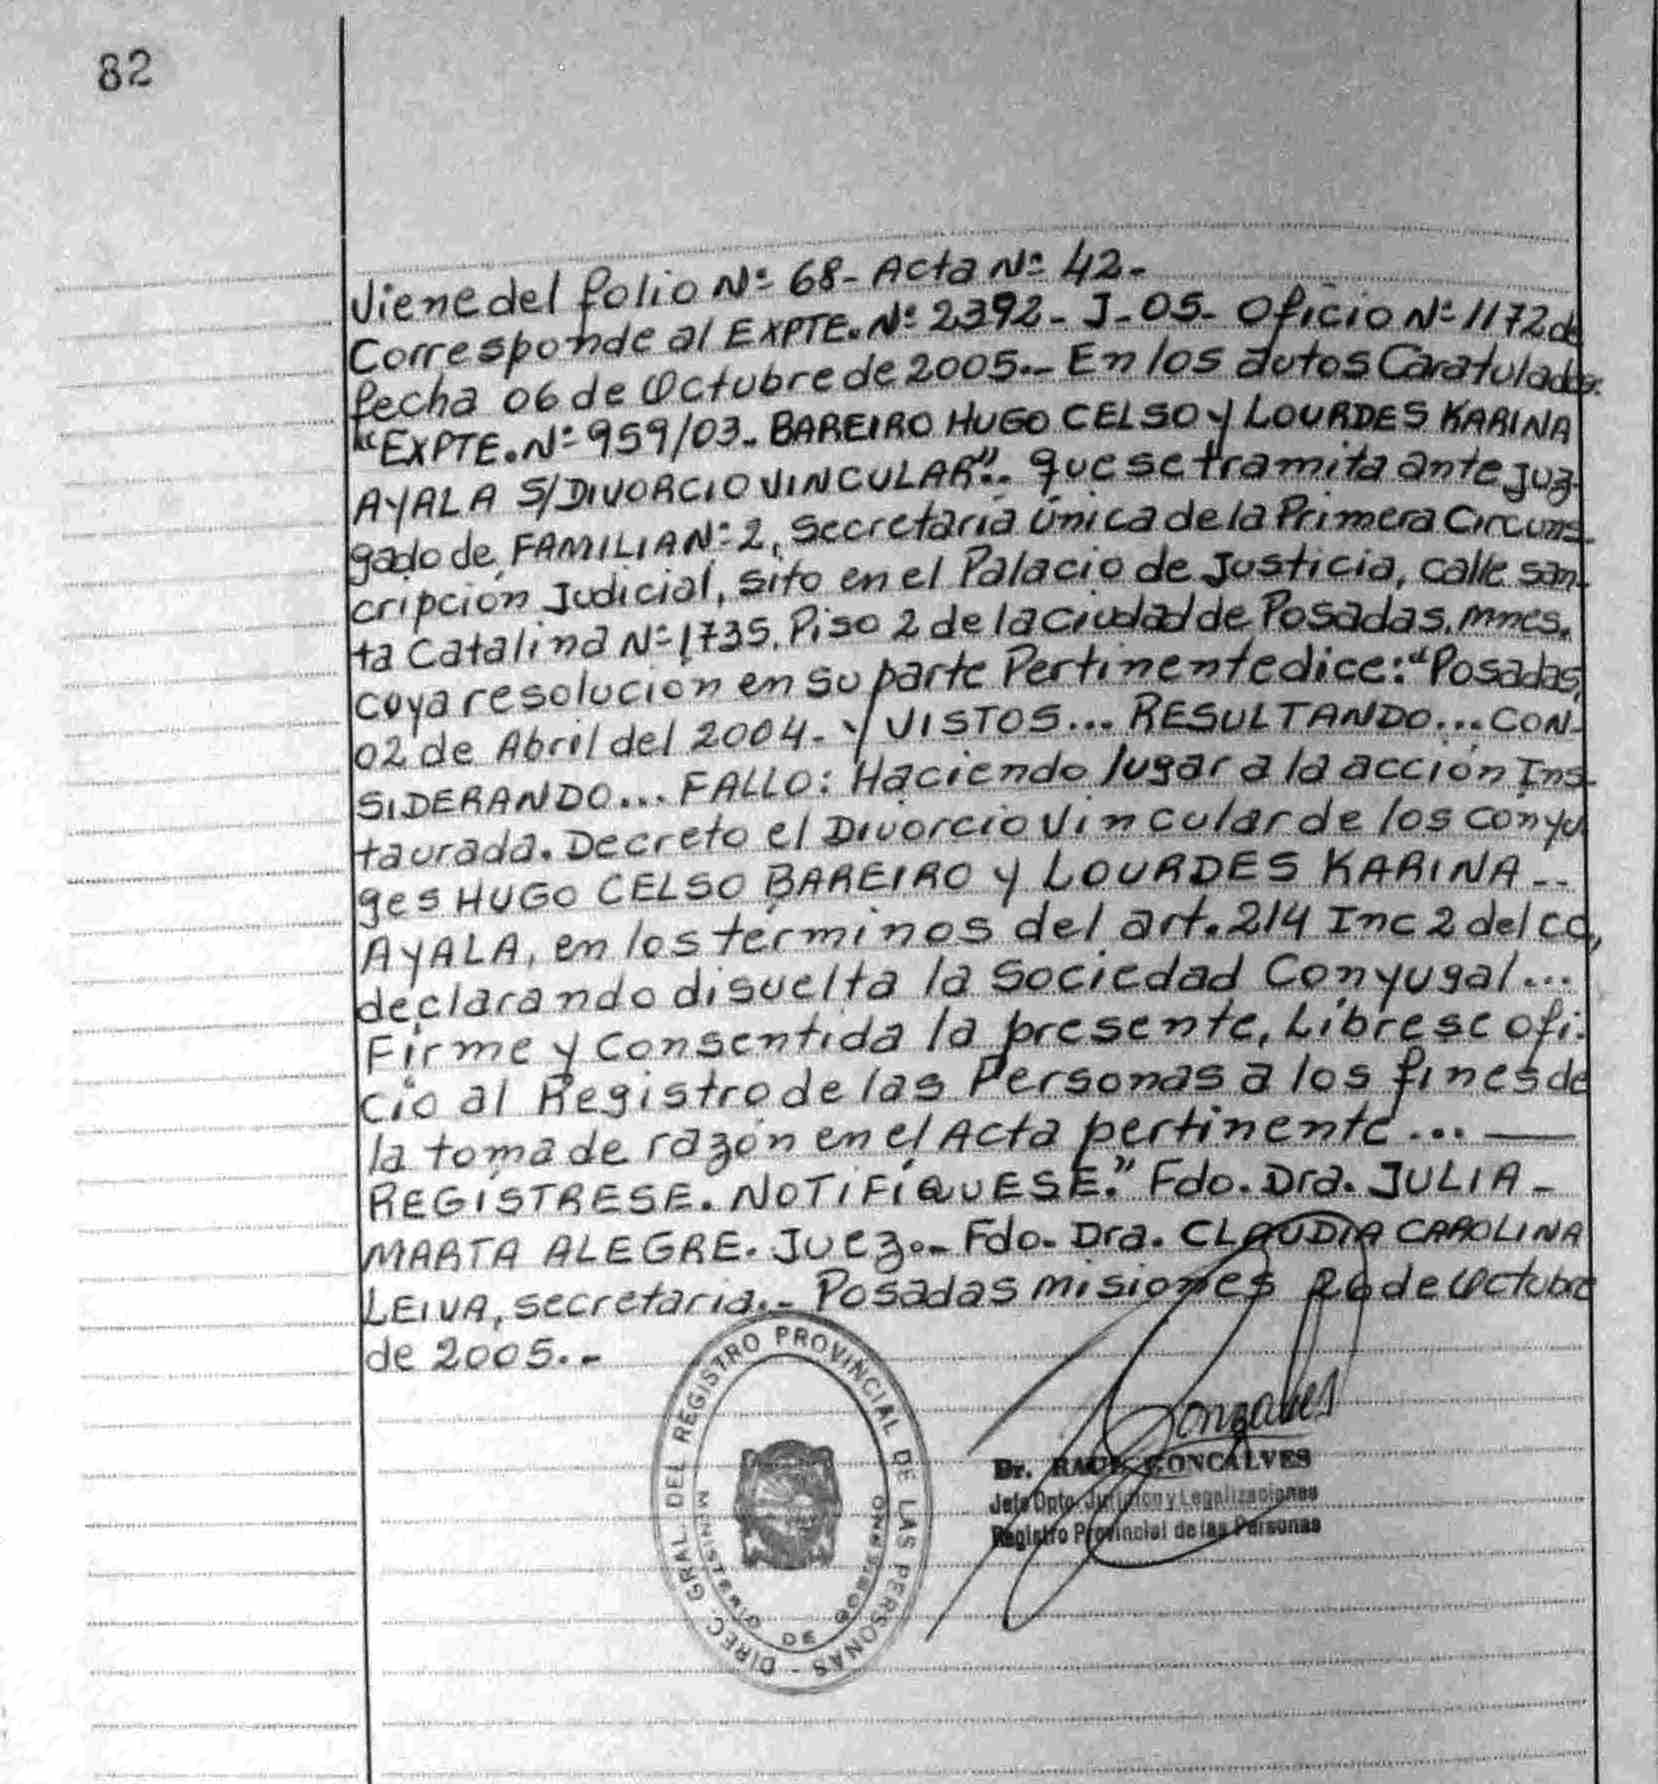 82
Viene del folio Nº 68- Acta Nº 42-
Corresponde al EXPTE. Nº 2392- J-05- Oficio Nº 1172 de
fecha 06 de Octubre de 2005.- En los autos Caratulados:
"EXPTE. Nº 959/03- BAREIRO HUGO CELSO y LOURDES KARINA
AYALA S/DIVORCIO VINCULAR".- que se tramita ante Juz-
gado de FAMILIA Nº 2, Secretaría única de la Primera Circuns-
cripción Judicial, sito en el Palacio de Justicia, calle San-
ta Catalina Nº 1735, Piso 2 de la Ciudad de Posadas, mnes.
cuya resolución en su parte Pertinente dice: "Posadas,
02 de Abril del 2004.- Y VISTOS... RESULTANDO... CON-
SIDERANDO... FALLO: Haciendo lugar a la acción Ins-
taurada. Decreto el Divorcio Vincular de los Conyu
ges HUGO CELSO BAREIRO y LOURDES KARINA --
AYALA, en los términos del art. 214 Inc 2 del CC,
declarando disuelta la Sociedad Conyugal...
Firme y Consentida la presente, Líbrese ofi-
cio al Registro de las Personas a los fines de
la toma de razón en el Acta pertinente... —
REGÍSTRESE. NOTIFÍQUESE." Fdo. Dra. JULIA -
MARTA ALEGRE. Juez.- Fdo. Dra. CLAUDIA CAROLINA
LEIVA, secretaria.- Posadas misiones 26 de Octubre
de 2005.-
DIREC. GRAL. DEL REGISTRO PROVINCIAL DE LAS PERSONAS -
MINISTERIO DE GOBIERNO
Gonçalves
Dr. RAUL GONCALVES
Jefe Dpto. Jurídico y Legalizaciones
Registro Provincial de las Personas